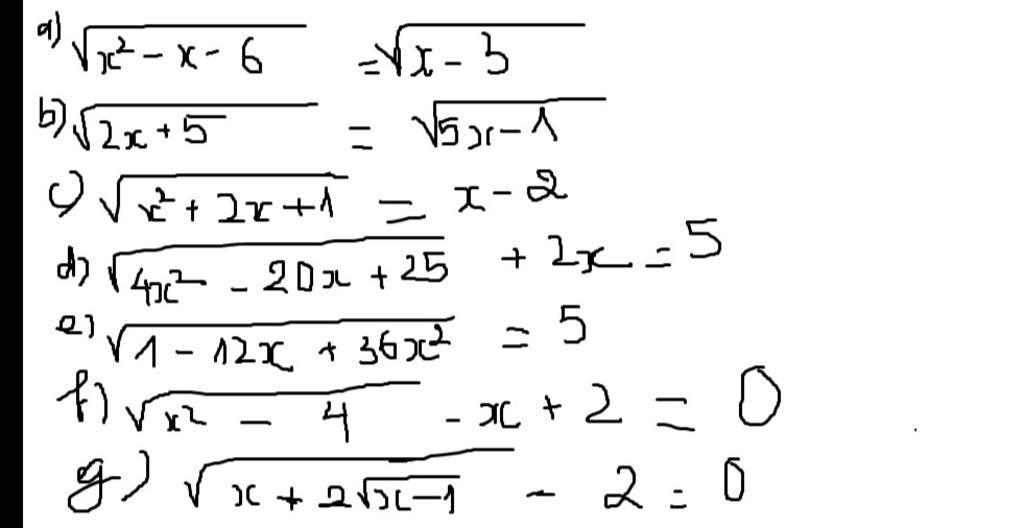 a) √(x² - x - 6) = √(x - 3)
b) √(2x + 5) = √(5x - 1)
c) √(x² + 2x + 1) = x - 2
d) √(4x² - 20x + 25) + 2x = 5
e) √(1 - 12x + 36x²) = 5
f) √(x² - 4) - x + 2 = 0
g) √(x + 2√(x - 1)) - 2 = 0